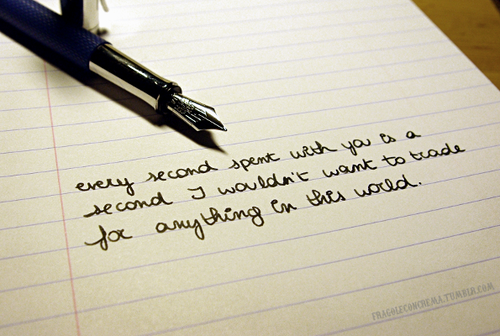 every second spent with you is a
second I wouldn't want to trade
for anything in this world.
FRAGOLECONCREMA.TUMBLR.COM